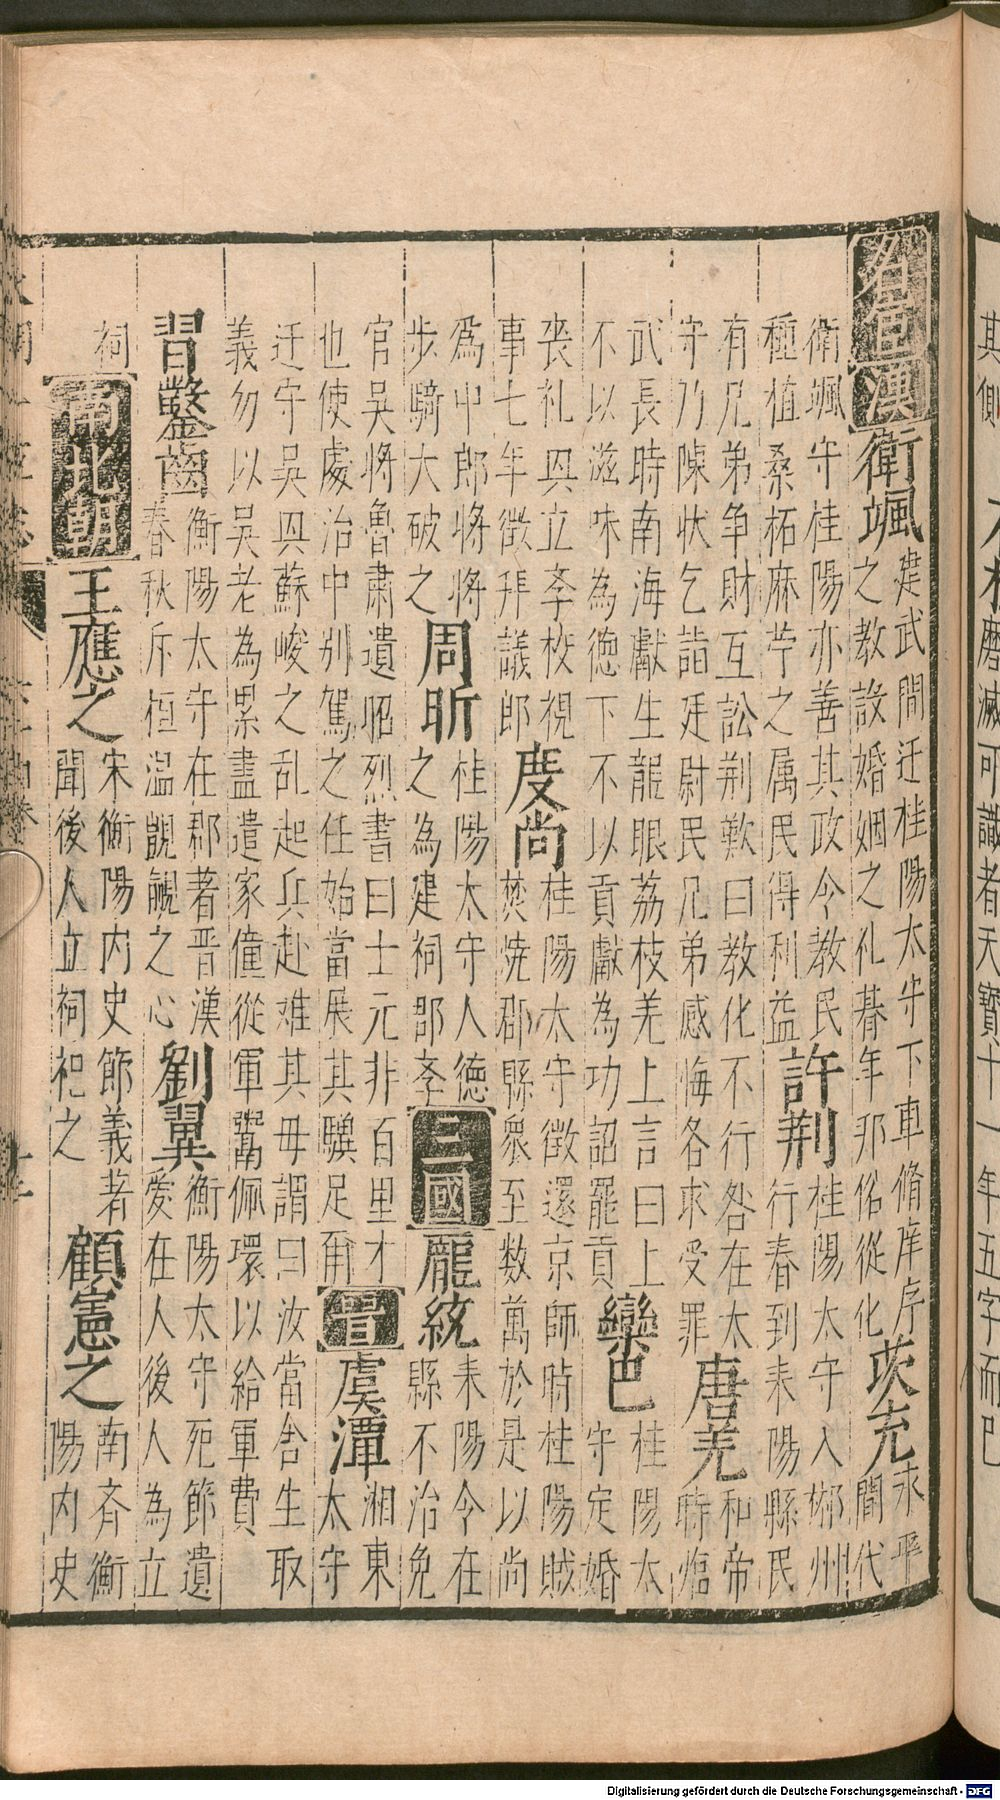 其側
木磨滅可識者天寶十一年五字而已
名宦
漢
衛颯
建武間迁桂陽太守下車脩庠序
之教設婚姻之礼朞年邦俗從化
茨充
永平
間代
衛颯守桂陽亦善其政令教民
種植桑柘麻苧之属民得利益
許荆
桂陽太守入郴州
行春到耒陽縣民
有兄弟争財互訟荆歎曰教化不行咎在太
守乃陳狀乞詣廷尉民兄弟感悔各求受罪
唐羌
和帝
時臨
武長時南海獻生龍眼荔枝羌上言曰上
不以滋味為德下不以貢獻為功詔罷貢
欒巴
桂陽太
守定婚
喪礼興立孝校視
事七年徵拜議郎
度尚
桂陽太守徵還京師時桂陽賊
焚燒郡縣衆至数萬於是以尚
為中郎将将
步騎大破之
周昕
桂陽太守人德
之為建祠郡孝
三國
龐統
耒陽令在
縣不治免
官吴将魯肅遺昭烈書曰士元非百里才
也使處治中别駕之任始當展其驥足爾
晋
虞潭
湘東
太守
迁守吴興蘇峻之乱起兵赴难其母謂曰汝當舍生取
義勿以吴老為累盡遣家僮從軍鬻佩環以給軍費
習鑿齒
衡陽太守在郡著晋漢
春秋斥桓温覬覦之心
劉翼
衡陽太守死節遺
愛在人後人為立
祠
南北朝
王應之
宋衡陽内史節義著
聞後人立祠祀之
顧憲之
南齐衡
陽内史
Digitalisierung gefördert durch die Deutsche Forschungsgemeinschaft - DFG